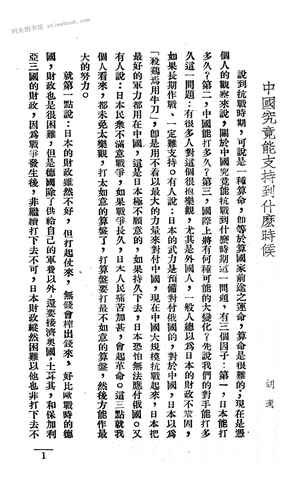 中國究竟能支持到什麽時候
說到抗戰時期，可說是一種算命，也等於算國家前途之運命，算命是很難的；現在是憑
個人的觀察來說，關於中國究竟能抗戰到什麽時期這一問題，有三個因子：第一，日本能打
多久？第二，中國能打多久？第三，國際上將有何種可能的大變化？先說我們的對手能打多
久這一問題：有很多人對這個很抱樂觀，尤其是外國人，一般人總以爲日本的財政不鞏固，
如果長期作戰，一定難支持。有人說：日本的武力是預備對付俄國的，對於中國，日本以爲
「殺鷄焉用牛刀」，即是用不着以最大的力量來對付中國，現在中國大規模抗戰起來，日本把
最好的軍力都用在中國，這是日本極不願意的，如果持久下去，日本恐怕無法應付俄國。又
有人說：日本民衆不滿意戰爭，如果戰爭長久，日本人民痛苦甚，會起革命。這三點就我
個人看來，都未免太樂觀，打太如意的算盤了，打算盤要打最不如意的算盤，然後方能作最
大的努力。
就第一點說：日本的財政雖然不好，但打起仗來，無論會榨出錢來，好比歐戰時的德
國，財政也是很困難，但是德國除了供給自己的軍費以外，還要接濟奧國，土耳其，和保加利
亞三國的財政，因爲戰爭發生後，非繼續打下去不可，日本財政縱然困難以他也非打下去不
1